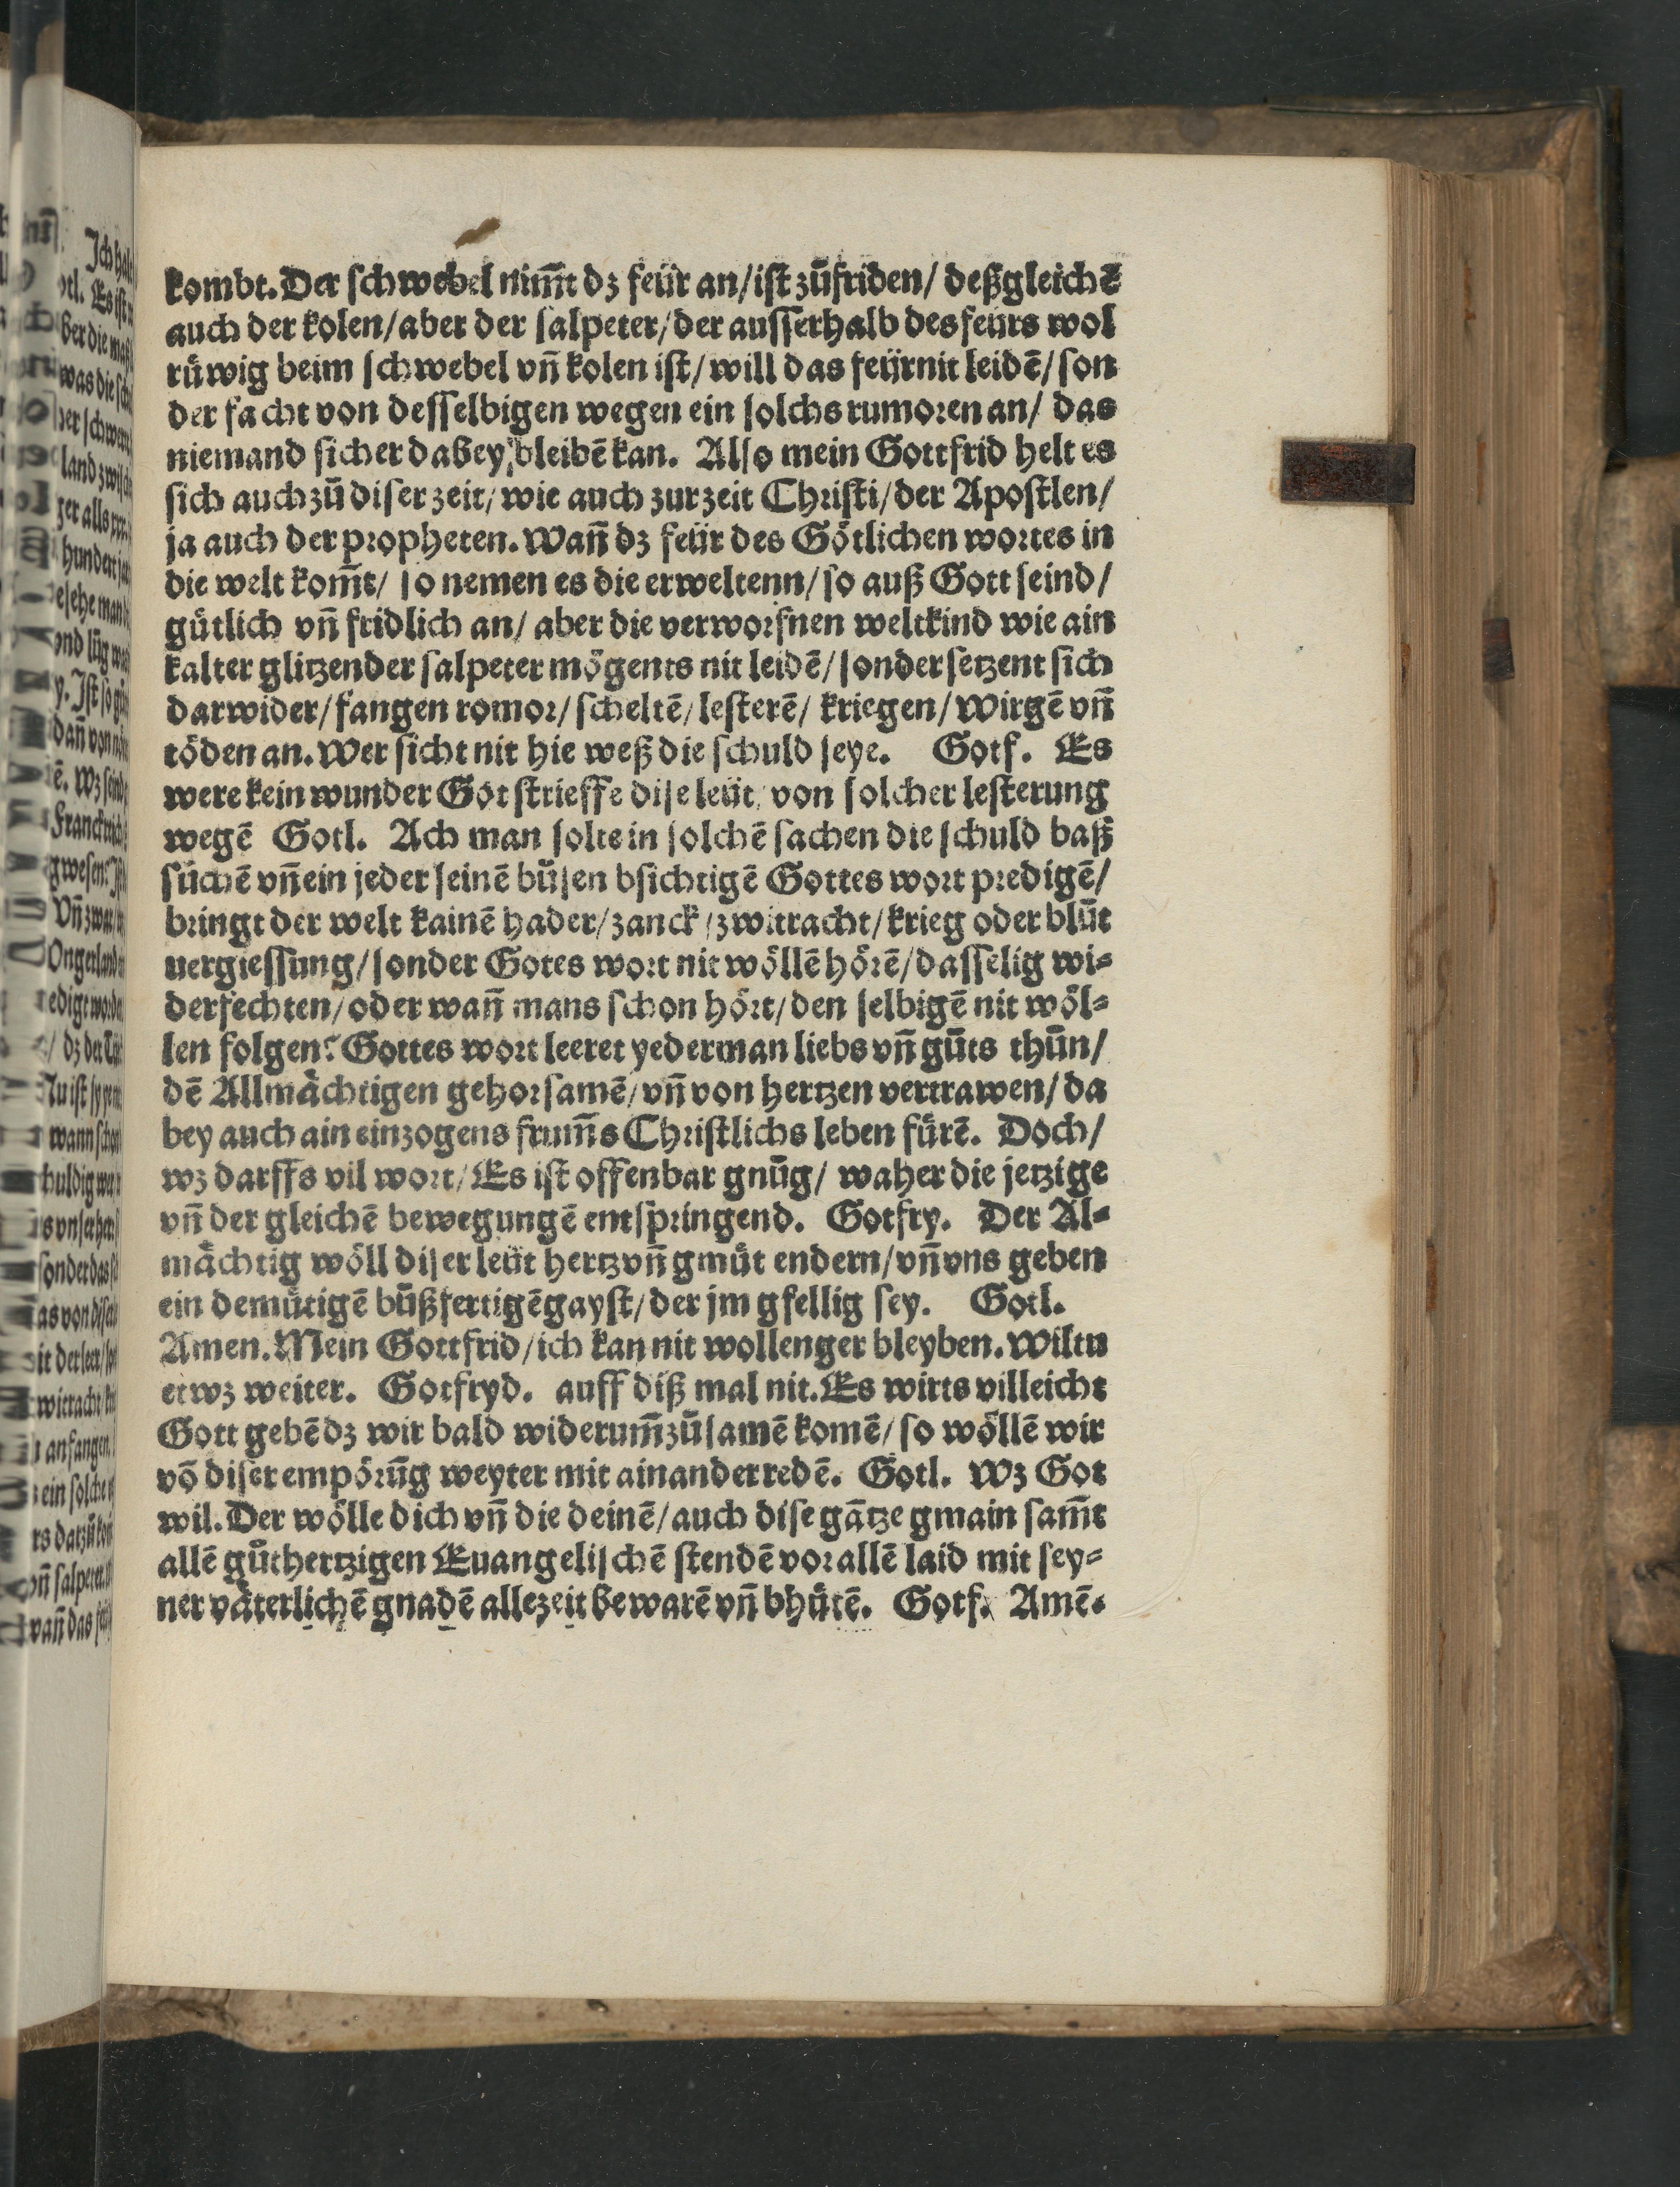 kombt. Der schwebel nim̄t dz feür an/ist zůfriden/ deßgleichē
auch der kolen/aber der salpeter/der ausserhalb des feürs wol
růwig beim schwebel vn̄ kolen ist/ will das feür nit leidē/son
der facht von desselbigen wegen ein solchs rumoren an/ das
niemand sicher dabey bleibē kan. Also mein Gottfrid helt es
sich auch zů diser zeit/ wie auch zur zeit Christi/der Apostlen/
ja auch der propheten. Wan̄ dz feür des Götlichen wortes in
die welt kom̄t/ so nemen es die erweltenn/so auß Gott seind/
gütlich vn̄ fridlich an/ aber die verworfnen weltkind wie ain
kalter glitzender salpeter mögents nit leidē/sonder setzent sich
darwider/fangen romor/scheltē/lesterē/ kriegen/Wirgē vn̄
töden an. Wer sicht nit hie weß die schuld seye. Gotf. Es
were kein wunder Got strieffe dise leüt von solcher lesterung
wegē Gotl. Ach man solte in solchē sachen die schuld baß
sůchē vn̄ ein jeder seinē bůsen bsichtigē Gottes wort predigē/
bringt der welt kainē hader/zanck/zwitracht/krieg oder blůt
uergiessung/sonder Gotes wort nit wöllē hörē/dasselig wi-
derfechten/oder wan̄ mans schon hört/den selbigē nit wöl-
len folgen? Gottes wort leeret yederman liebs vn̄ gůts thůn/
dē Allmächtigen gehorsamē/vn̄ von hertzen vertrawen/da
bey auch ain einzogens frum̄s Christlichs leben fürē. Doch/
wz darffs vil wort/Es ist offenbar gnůg/ waher die jetzige
vn̄ der gleichē bewegungē entspringend. Gotfry. Der Al-
mächtig wöll diser leüt hertz vn̄ gmüt endern/vn̄ vns geben
ein demütigē bůßfertigē gayst/der jm gfellig sey. Gotl.
Amen. Mein Gottfrid/ich kan nit wol lenger bleyben. Wiltu
etwz weiter. Gotfryd. auff diß mal nit. Es wirts villeicht
Gott gebē dz wir bald widerum̄ zůsamē komē/so wöllē wir
vō diser empörūg weyter mit ainander redē. Gotl. Wz Got
wil. Der wölle dich vn̄ die deinē/auch dise gātze gmain sam̄t
allē gůthertzigen Euangelischē stendē vor allē laid mit sey-
ner väterlichē gnadē allezeit bewarē vn̄ bhütē. Gotf. Amē.